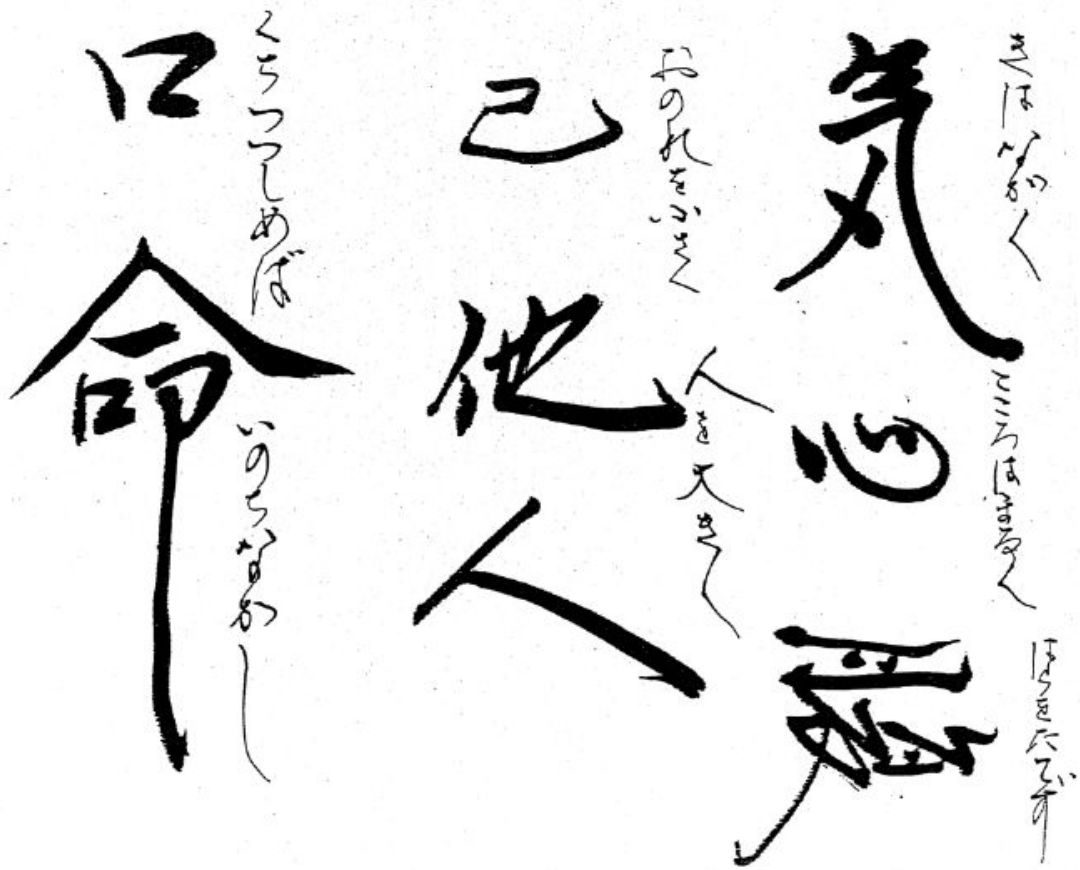 きはながく こころはまるく はらをたてず
気心腹
おのれを小さく 人を大きく
己他人
くちつつしめば いのちながし
口命